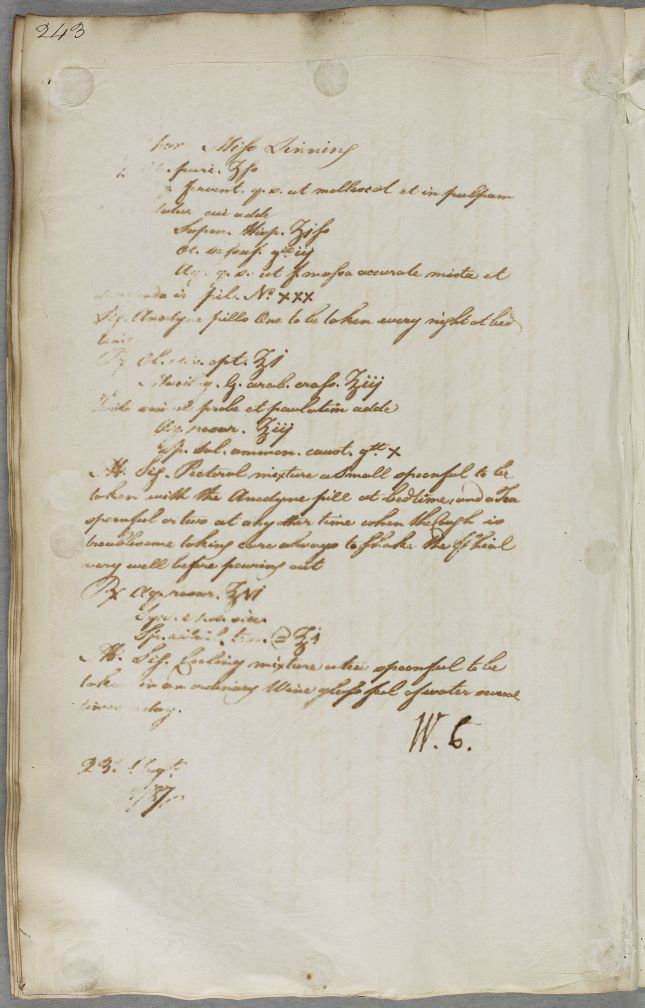 243
Miss Linning
puri. ʒss
fervent. q.s. ut mollescat et in pulpam
cui adde
Sapon. Hisp. ʒiss
Ol. sassaf. gtt iij
Aq. q.s. ut f. massa accurate mista et
in pil. No. xxx
Sig. Anodyne pills One to be taken every night at bed
time
℞ Ol. oliv. opt. ℥j
Mucilag. G. arab. crass. ℥iij
probe et paulatim adde
Aq. rosar. ℥iij
Sp. sal. ammon. caust. gtt x
M. Sig. Pectoral mixture a small spoonful to be
taken with the Anodyne pill at bedtime, and a Tea
spoonful or two at any other time when the Cough is
troublesome taking care always to shake the Phial
very well before pouring out
℞ Aq. rosar. ℥vi
Syr.
Sp. nitri. ℥j
M. Sig. Cooling mixture a tea spoonful to be
taken in an ordinary Wine glass full of water several
times a day.
W. C.
23. Augt.
1787